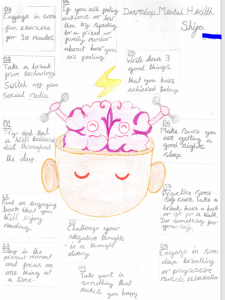 Develop Mental Health
04
Engage in some
fun exercise
for 30 minutes
If you are feeling
anxious or low
then try speaking
to a friend or
family member
about how you
are feeling.
03
Take a break
from technology
Switch off your
Social Media
05
Write down 3
good things
that you have
achieved today
01
Try and eat
a well balanced
diet throughout
the day.
06
Make sure you
are getting a
good nights
sleep.
12
Find an engaging
book that you
will enjoy
reading.
07
Practice some
self care. Take a
break, have a bath
or go for a walk.
Do something for
yourself.
11
Stay in the
present moment
and focus on
one thing at
a time.
10
Challenge your
negative thoughts
in a thought
diary.
09
Take part in
something that
makes you happy
08
Engage in some
deep breathing
or progressive
muscle relaxation